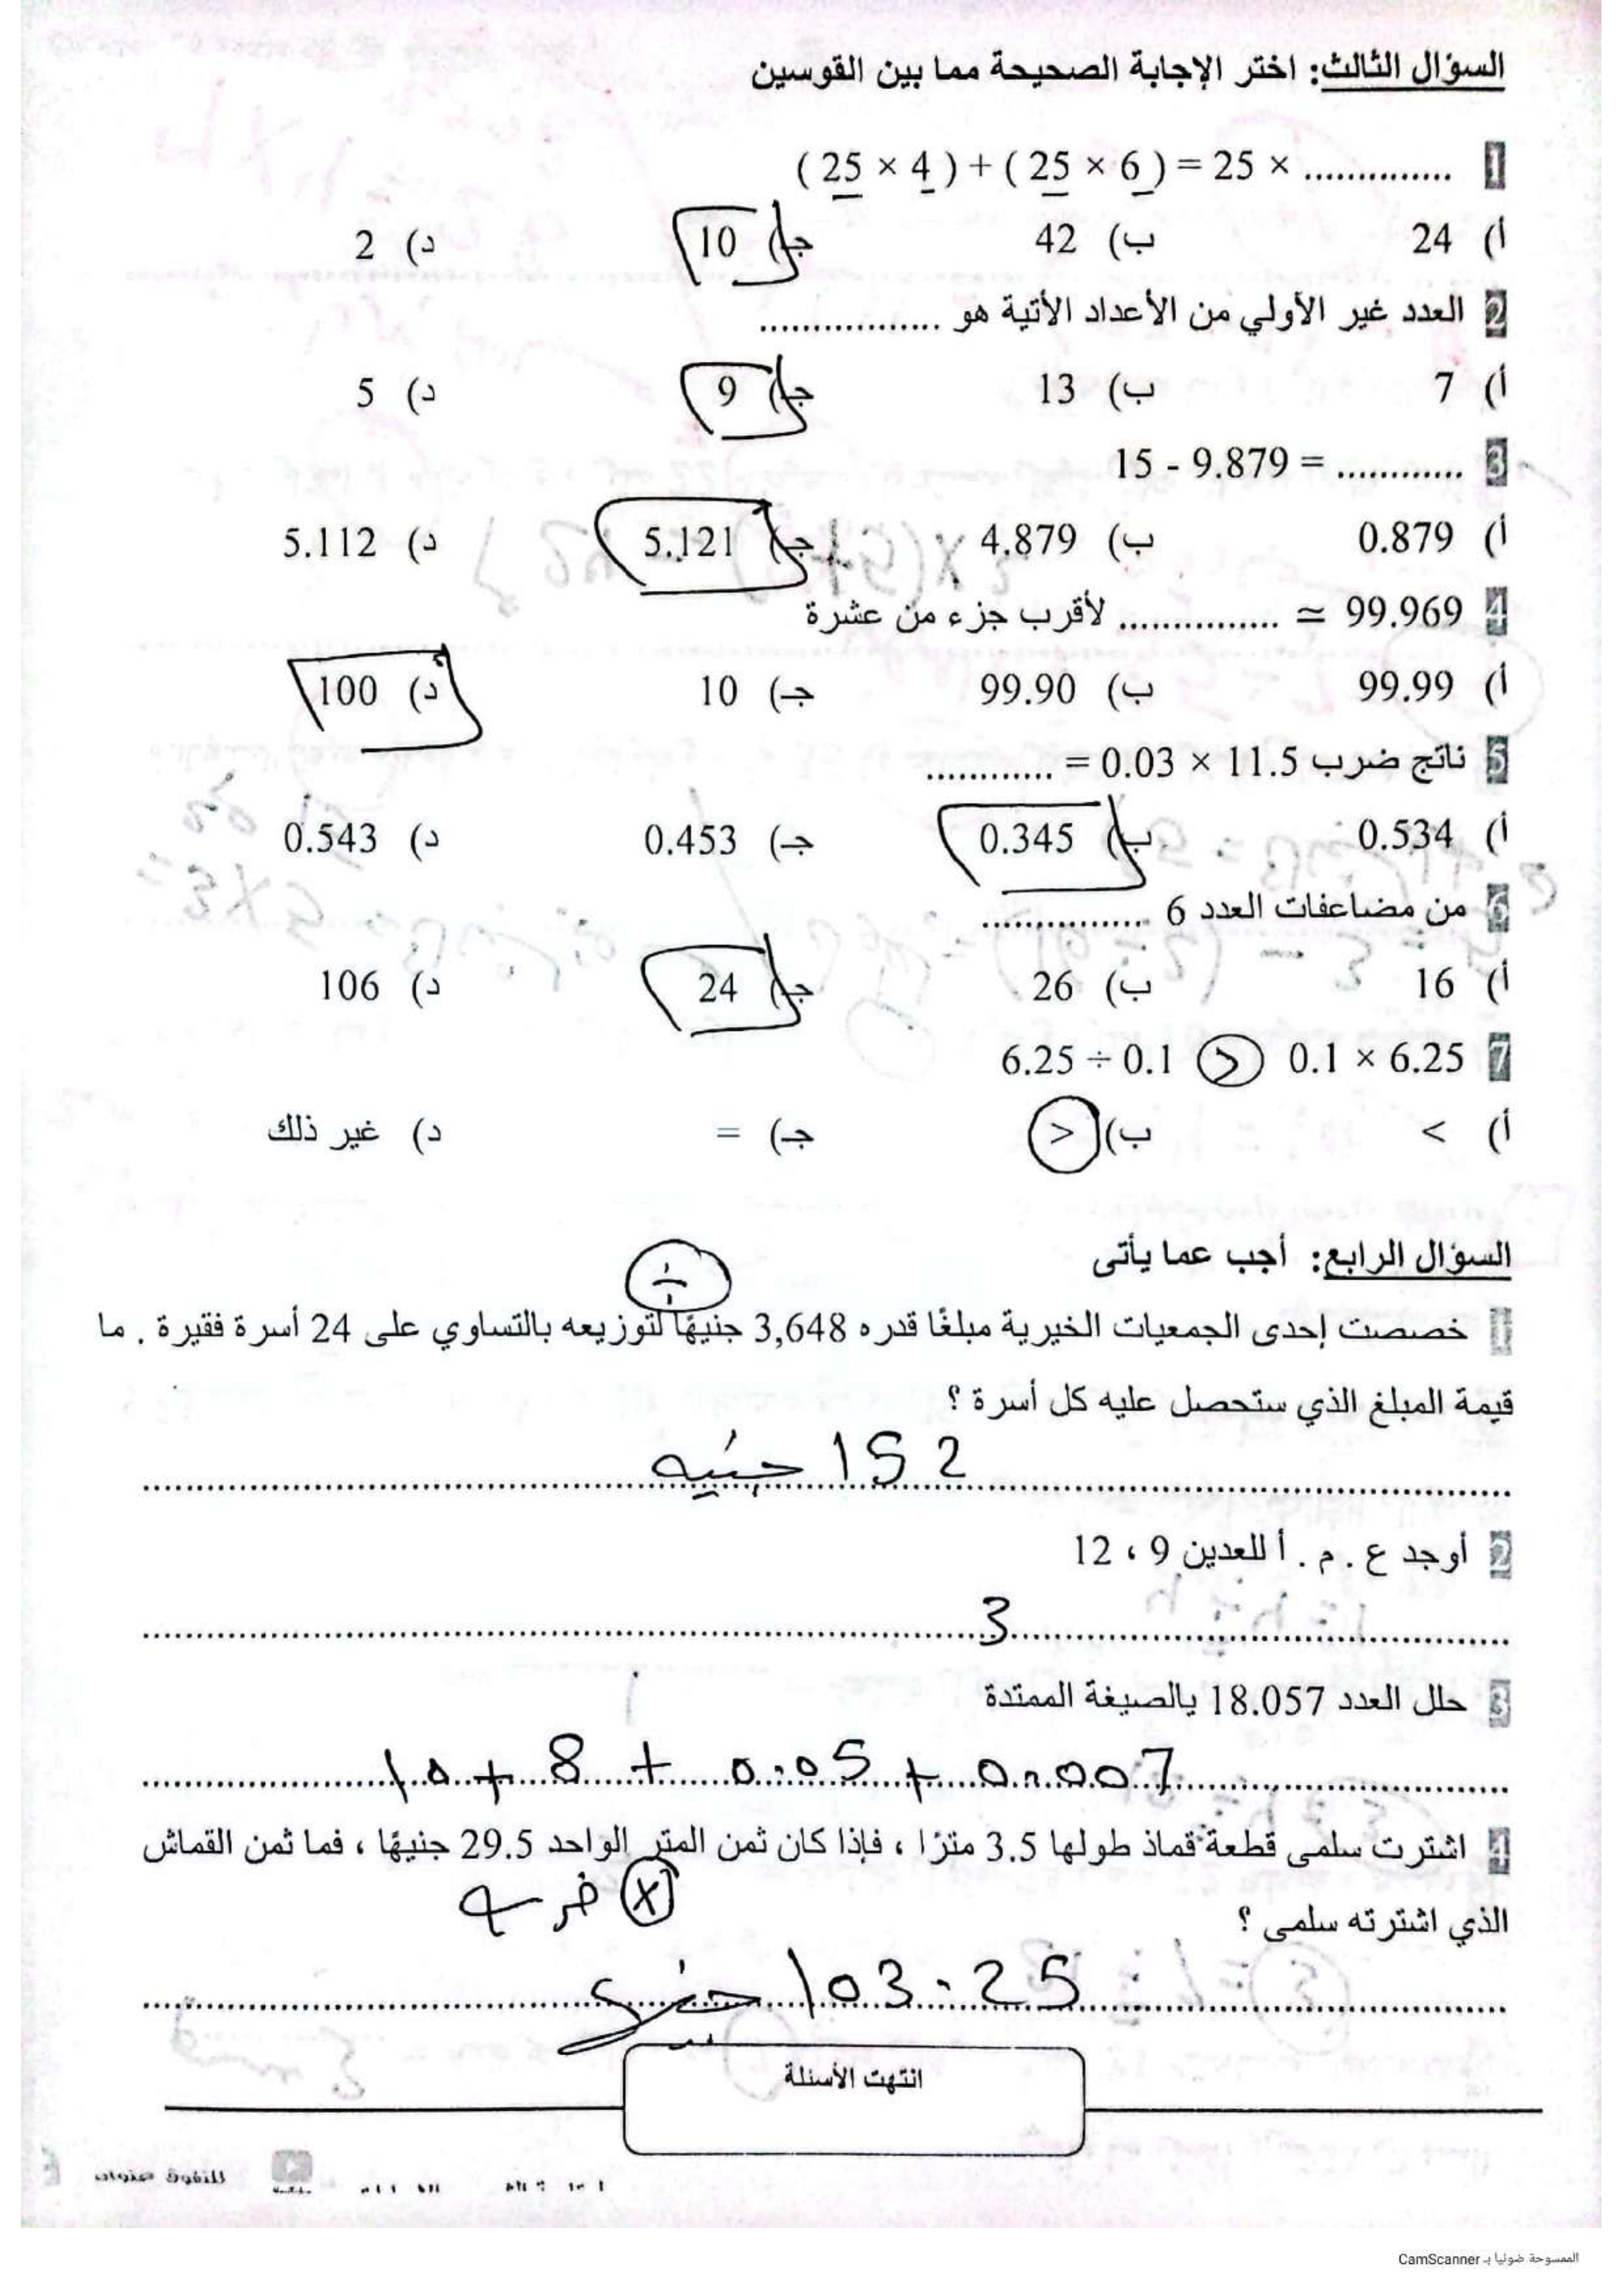 السؤال الثالث: اختر الإجابة الصحيحة مما بين القوسين
1 ( 25 × 4 ) + ( 25 × 6 ) = 25 × ..............
أ) 24 ب) 42 جـ) 10 د) 2
2 العدد غير الأولي من الأعداد الأتية هو .................
أ) 7 ب) 13 جـ) 9 د) 5
3 15 - 9.879 = ............
أ) 0.879 ب) 4.879 جـ) 5.121 د) 5.112
4 99.969 ≃ ............... لأقرب جزء من عشرة
أ) 99.99 ب) 99.90 جـ) 10 د) 100
5 ناتج ضرب 11.5 × 0.03 = ............
أ) 0.534 ب) 0.345 جـ) 0.453 د) 0.543
6 من مضاعفات العدد 6 ................
أ) 16 ب) 26 جـ) 24 د) 106
7 6.25 ÷ 0.1 > 0.1 × 6.25
أ) < ب) > جـ) = د) غير ذلك
السؤال الرابع: أجب عما يأتى
÷
1 خصصت إحدى الجمعيات الخيرية مبلغًا قدره 3,648 جنيهًا لتوزيعه بالتساوي على 24 أسرة فقيرة . ما
قيمة المبلغ الذي ستحصل عليه كل أسرة ؟
152 جنيه
2 أوجد ع . م . أ للعدين 9 ، 12
3
3 حلل العدد 18.057 بالصيغة الممتدة
10 + 8 + 0.05 + 0.007
4 اشترت سلمى قطعة قماذ طولها 3.5 مترًا ، فإذا كان ثمن المتر الواحد 29.5 جنيهًا ، فما ثمن القماش
الذي اشترته سلمى ؟ × ضرب
103.25
انتهت الأسئلة
الممسوحة ضوئيا بـ CamScanner